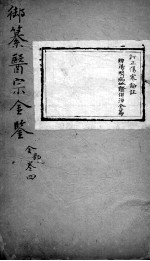 御纂醫宗金鑒
全部卷四
訂正傷寒論註
辨陽明病脈證併治全篇